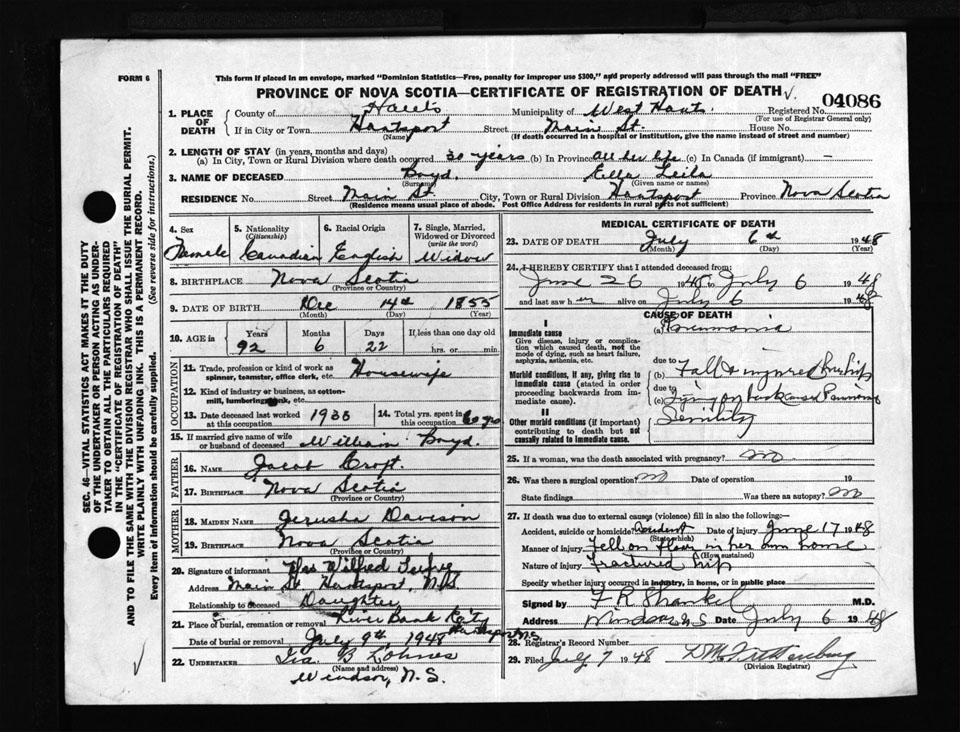 FORM 6
This form if placed in an envelope, marked "Dominion Statistics—Free, penalty for improper use $300," and properly addressed will pass through the mail "FREE"
PROVINCE OF NOVA SCOTIA—CERTIFICATE OF REGISTRATION OF DEATH
04086
1. PLACE OF DEATH
County of Hants Municipality of West Hants Registered No.
(For use of Registrar General only)
If in City or Town Hantsport Street Main St. House No.
(Name) (If death occurred in a hospital or institution, give the name instead of street and number)
2. LENGTH OF STAY (in years, months and days)
(a) In City, Town or Rural Division where death occurred 30 years (b) In Province All her life (c) In Canada (if immigrant) —
3. NAME OF DECEASED Boyd Ella Leila
(Surname) (Given name or names)
RESIDENCE No. Street Main St City, Town or Rural Division Hantsport Province Nova Scotia
(Residence means usual place of abode. Post Office Address for residents in rural parts not sufficient)
4. Sex
Female
5. Nationality
(Citizenship)
Canadian
6. Racial Origin
English
7. Single, Married, Widowed or Divorced
(write the word)
Widow
8. BIRTHPLACE Nova Scotia
(Province or Country)
9. DATE OF BIRTH Dec 14th 1855
(Month) (Day) (Year)
10. AGE in
Years Months Days If less than one day old
92 6 22 hrs. or min.
OCCUPATION
11. Trade, profession or kind of work as spinner, teamster, office clerk, etc. Housewife
12. Kind of industry or business, as cotton-mill, lumbering, bank, etc.
13. Date deceased last worked at this occupation
14. Total yrs. spent in this occupation
15. If married give name of wife or husband of deceased William Boyd.
FATHER
16. NAME Jacob Croft.
17. BIRTHPLACE Nova Scotia
(Province or Country)
MOTHER
18. MAIDEN NAME Jerusha Davison
19. BIRTHPLACE Nova Scotia
(Province or Country)
20. Signature of informant Mrs Wilfred
Address Main St Hantsport, N.S
Relationship to deceased Daughter
21. Place of burial, cremation or removal River Bank
Hantsport N.S
Date of burial or removal July 9th, 1948
22. UNDERTAKER Ira B Lohnes
(Name and address)
Windsor, N.S.
MEDICAL CERTIFICATE OF DEATH
23. DATE OF DEATH July 6th 1948
(Month) (Day) (Year)
24. I HEREBY CERTIFY that I attended deceased from:
June 26 1948 to July 6 1948
and last saw her alive on July 6 1948
CAUSE OF DEATH
I
Immediate cause (a) Pneumonia
Give disease, injury or complication which caused death, not the mode of dying, such as heart failure, asphyxia, asthenia, etc.
due to
Morbid conditions, if any, giving rise to immediate cause (stated in order proceeding backwards from immediate cause). (b) Fall & injured hip
due to
(c) Lying on back caused Pneumonia
II
Other morbid conditions (if important) contributing to death but not causally related to immediate cause. Senility
25. If a woman, was the death associated with pregnancy? no
26. Was there a surgical operation? no Date of operation 19
State findings Was there an autopsy? no
27. If death was due to external causes (violence) fill in also the following:
Accident, suicide or homicide? Accident Date of injury June 17 1948
(State which)
Manner of injury Fell on floor in her own home
(How sustained)
Nature of injury Fractured hip
Specify whether injury occurred in industry, in home, or in public place
Signed by F R Shankel M.D.
Address Windsor N S Date July 6 1948
28. Registrar's Record Number
29. Filed July 7 1948
(Division Registrar)
SEC. 46—VITAL STATISTICS ACT MAKES IT THE DUTY
OF THE UNDERTAKER OR PERSON ACTING AS UNDER-
TAKER TO OBTAIN ALL THE PARTICULARS REQUIRED
IN THE "CERTIFICATE OF REGISTRATION OF DEATH"
AND TO FILE THE SAME WITH THE DIVISION REGISTRAR WHO SHALL ISSUE THE BURIAL PERMIT.
WRITE PLAINLY WITH UNFADING INK. THIS IS A PERMANENT RECORD.
Every item of information should be carefully supplied. (See reverse side for instructions.)